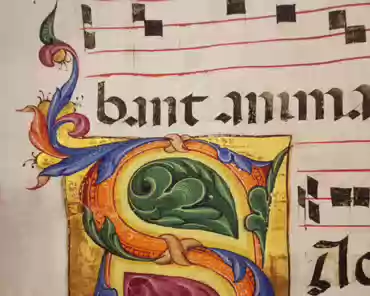 bant anima
S